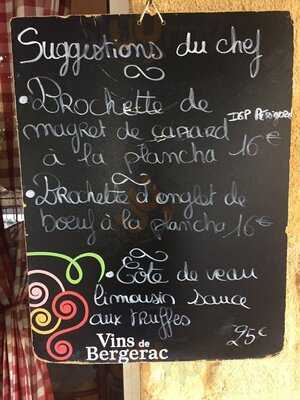 Suggestions du chef
• Brochette de
magret de canard IGP PÉRIGORD
à la plancha 16€
• Brochette d'onglet de
boeuf à la plancha 16€
• Côte de veau
limousin sauce
aux truffes
25€
Vins de
Bergerac